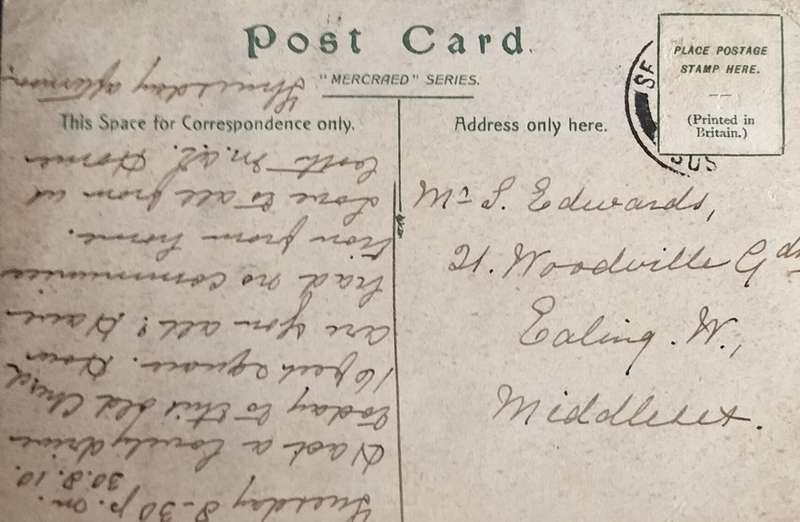 Post Card.
"MERCRAED" SERIES.
PLACE POSTAGE
STAMP HERE.
(Printed in
Britain.)
SE
SUS
This Space for Correspondence only.
Address only here.
Tuesday 8-30 p.m.
30.8.10.
Had a lovely drive
today to this old Church
16 feet square. How
are you all? Have
had no communica
tion from home.
Love to all from us
both M. & L. Home
Thursday afternoon.
Mr S. Edwards,
21. Woodville Gdns
Ealing. W.,
Middlesex.